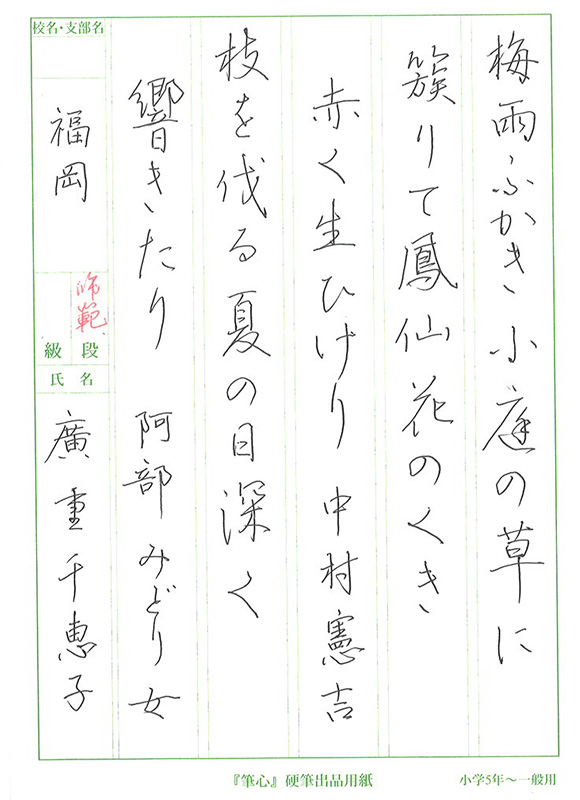 梅雨ふかき小庭の草に
簇りて鳳仙花のくき
赤く生ひけり 中村憲吉
枝を伐る夏の日深く
響きたり 阿部みどり女
校名・支部名
福岡
師範
段級
氏名
廣重千恵子
『筆心』硬筆出品用紙
小学5年〜一般用